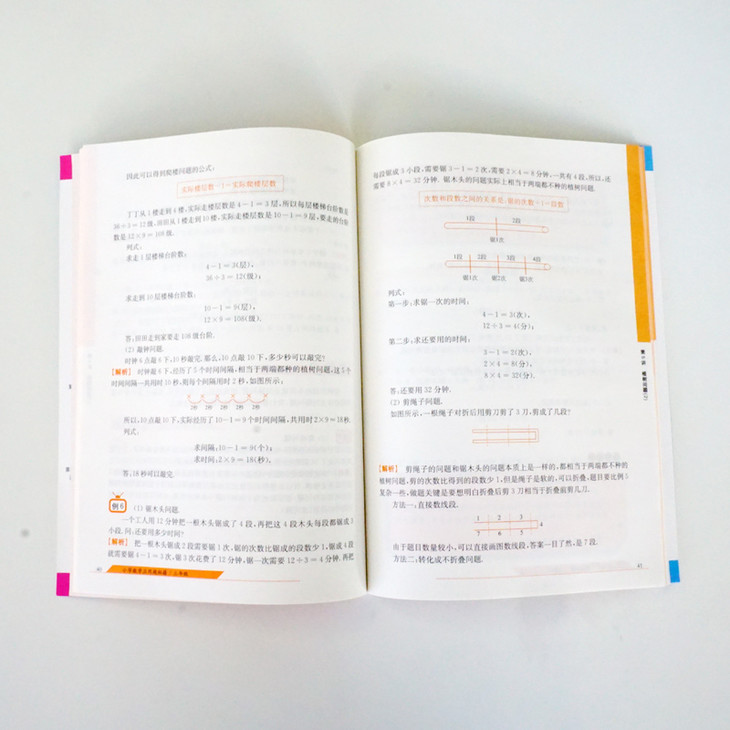 因此可以得到爬楼问题的公式:
实际楼层数-1=实际爬楼层数
丁丁从1楼走到4楼,实际走楼层数是4-1=3层,所以每层楼梯台阶数是
36÷3=12级.田田从1楼走到10楼,实际走楼层数是10-1=9层,要走的台阶
数是12×9=108级.
列式:
求走1层楼梯台阶数:
4-1=3(层),
36÷3=12(级);
求走到10层楼梯台阶数:
10-1=9(层),
12×9=108(级).
答:田田走到家要走108级台阶.
(2)敲钟问题.
时钟6点敲6下,10秒敲完.那么,10点敲10下,多少秒可以敲完?
【解析】时钟敲6下,经历了5个时间间隔,相当于两端都种的植树问题,这5个
时间间隔一共用时10秒,则每个间隔用时2秒,如图所示:
2秒 2秒 2秒 2秒 2秒
所以,10点敲10下,实际经历了10-1=9个时间间隔,共用时2×9=18秒.
列式:
求间隔:10-1=9(个);
求时间:2×9=18(秒).
答:18秒可以敲完.
例6 (1)锯木头问题.
一个工人用12分钟把一根木头锯成了4段,再把这4段木头每段都锯成3
小段.问:还要用多少时间?
【解析】把一根木头锯成2段需要锯1次,锯的次数比锯成的段数少1,锯成4段
就需要锯4-1=3次,锯3次花费了12分钟,锯一次需要12÷3=4分钟.再把
40
每段锯成3小段,需要锯3-1=2次,需要2×4=8分钟,一共有4段,所以,还
需要8×4=32分钟.锯木头的问题实际上相当于两端都不种的植树问题.
次数和段数之间的关系是:锯的次数+1=段数
1段 2段
锯1次
1段 2段 3段 4段
锯1次 锯2次 锯3次
列式:
第一步:求锯一次的时间:
4-1=3(次),
12÷3=4(分);
第二步:求还要用的时间:
3-1=2(次),
2×4=8(分),
8×4=32(分).
答:还要用32分钟.
(2)剪绳子问题.
如图所示,一根绳子对折后用剪刀剪了3刀,剪成了几段?
【解析】剪绳子的问题和锯木头的问题本质上是一样的,都相当于两端都不种的
植树问题,剪的次数比得到的段数少1,但是绳子是软的,可以折叠,题目要比例5
复杂一些,做题关键是要想明白折叠后剪3刀相当于折叠前剪几刀.
方法一:直接数线段.
1 2 3
4
7 6 5
由于题目数量较小,可以直接画图数线段,答案一目了然,是7段.
方法二:转化成不折叠问题.
41